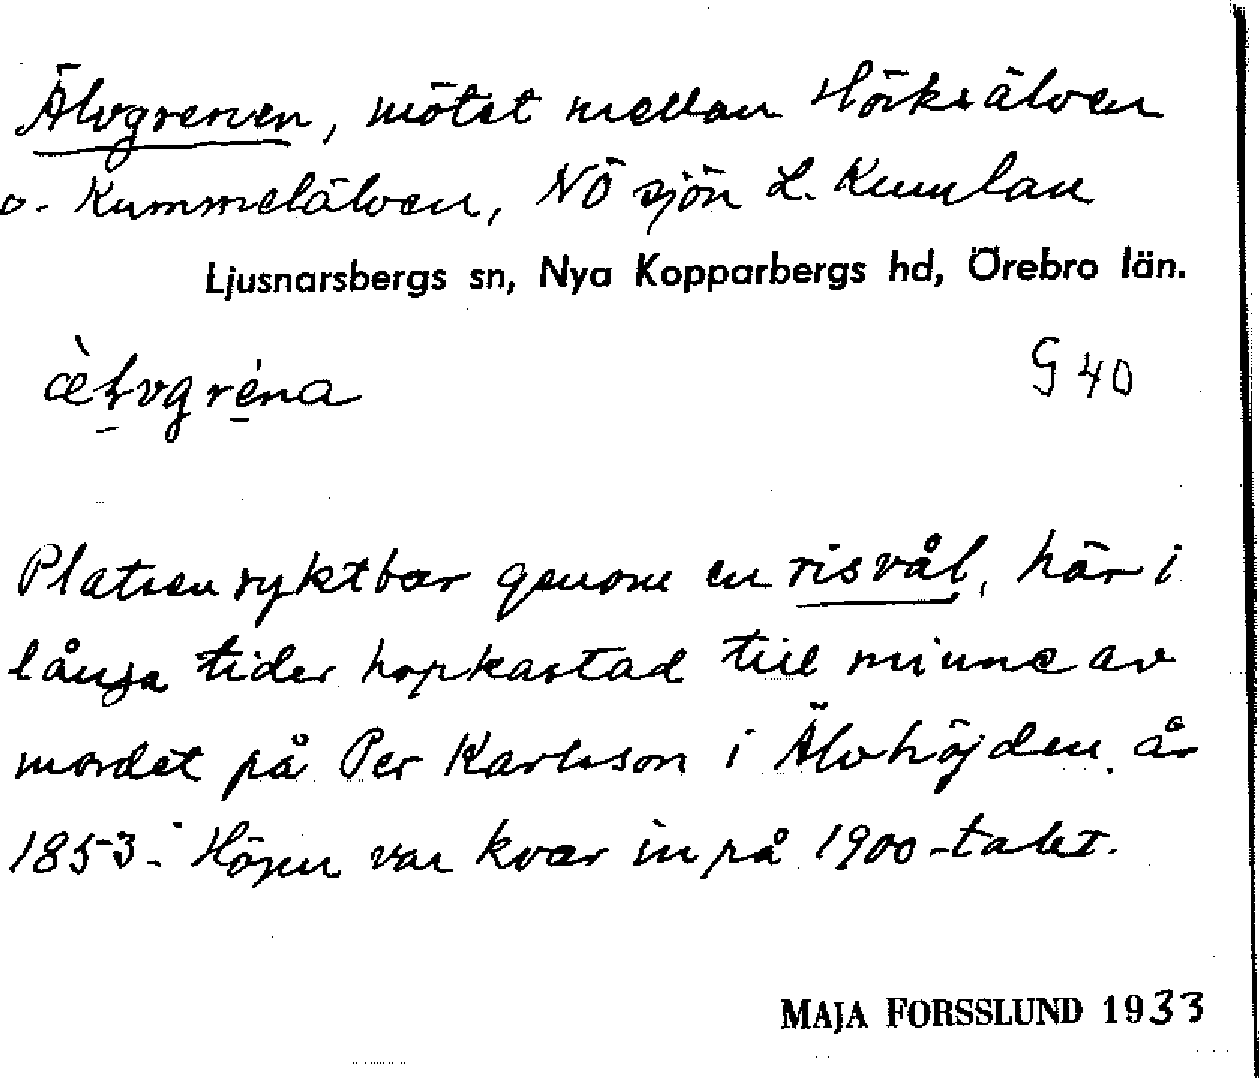 Älvgrenen, mötet mellan Hörksälven
o. Kummelälven, NÖ sjön L. Kumlan
Ljusnarsbergs sn, Nya Kopparbergs hd, Örebro län.
G 40
Platsen ryktbar genom en risvål, här i
långa tider hopkastad till minne av
mordet på Per Karlsson i Älvhöjden år
1853. Högen var kvar in på 1900-talet.
MAJA FORSSLUND 1933